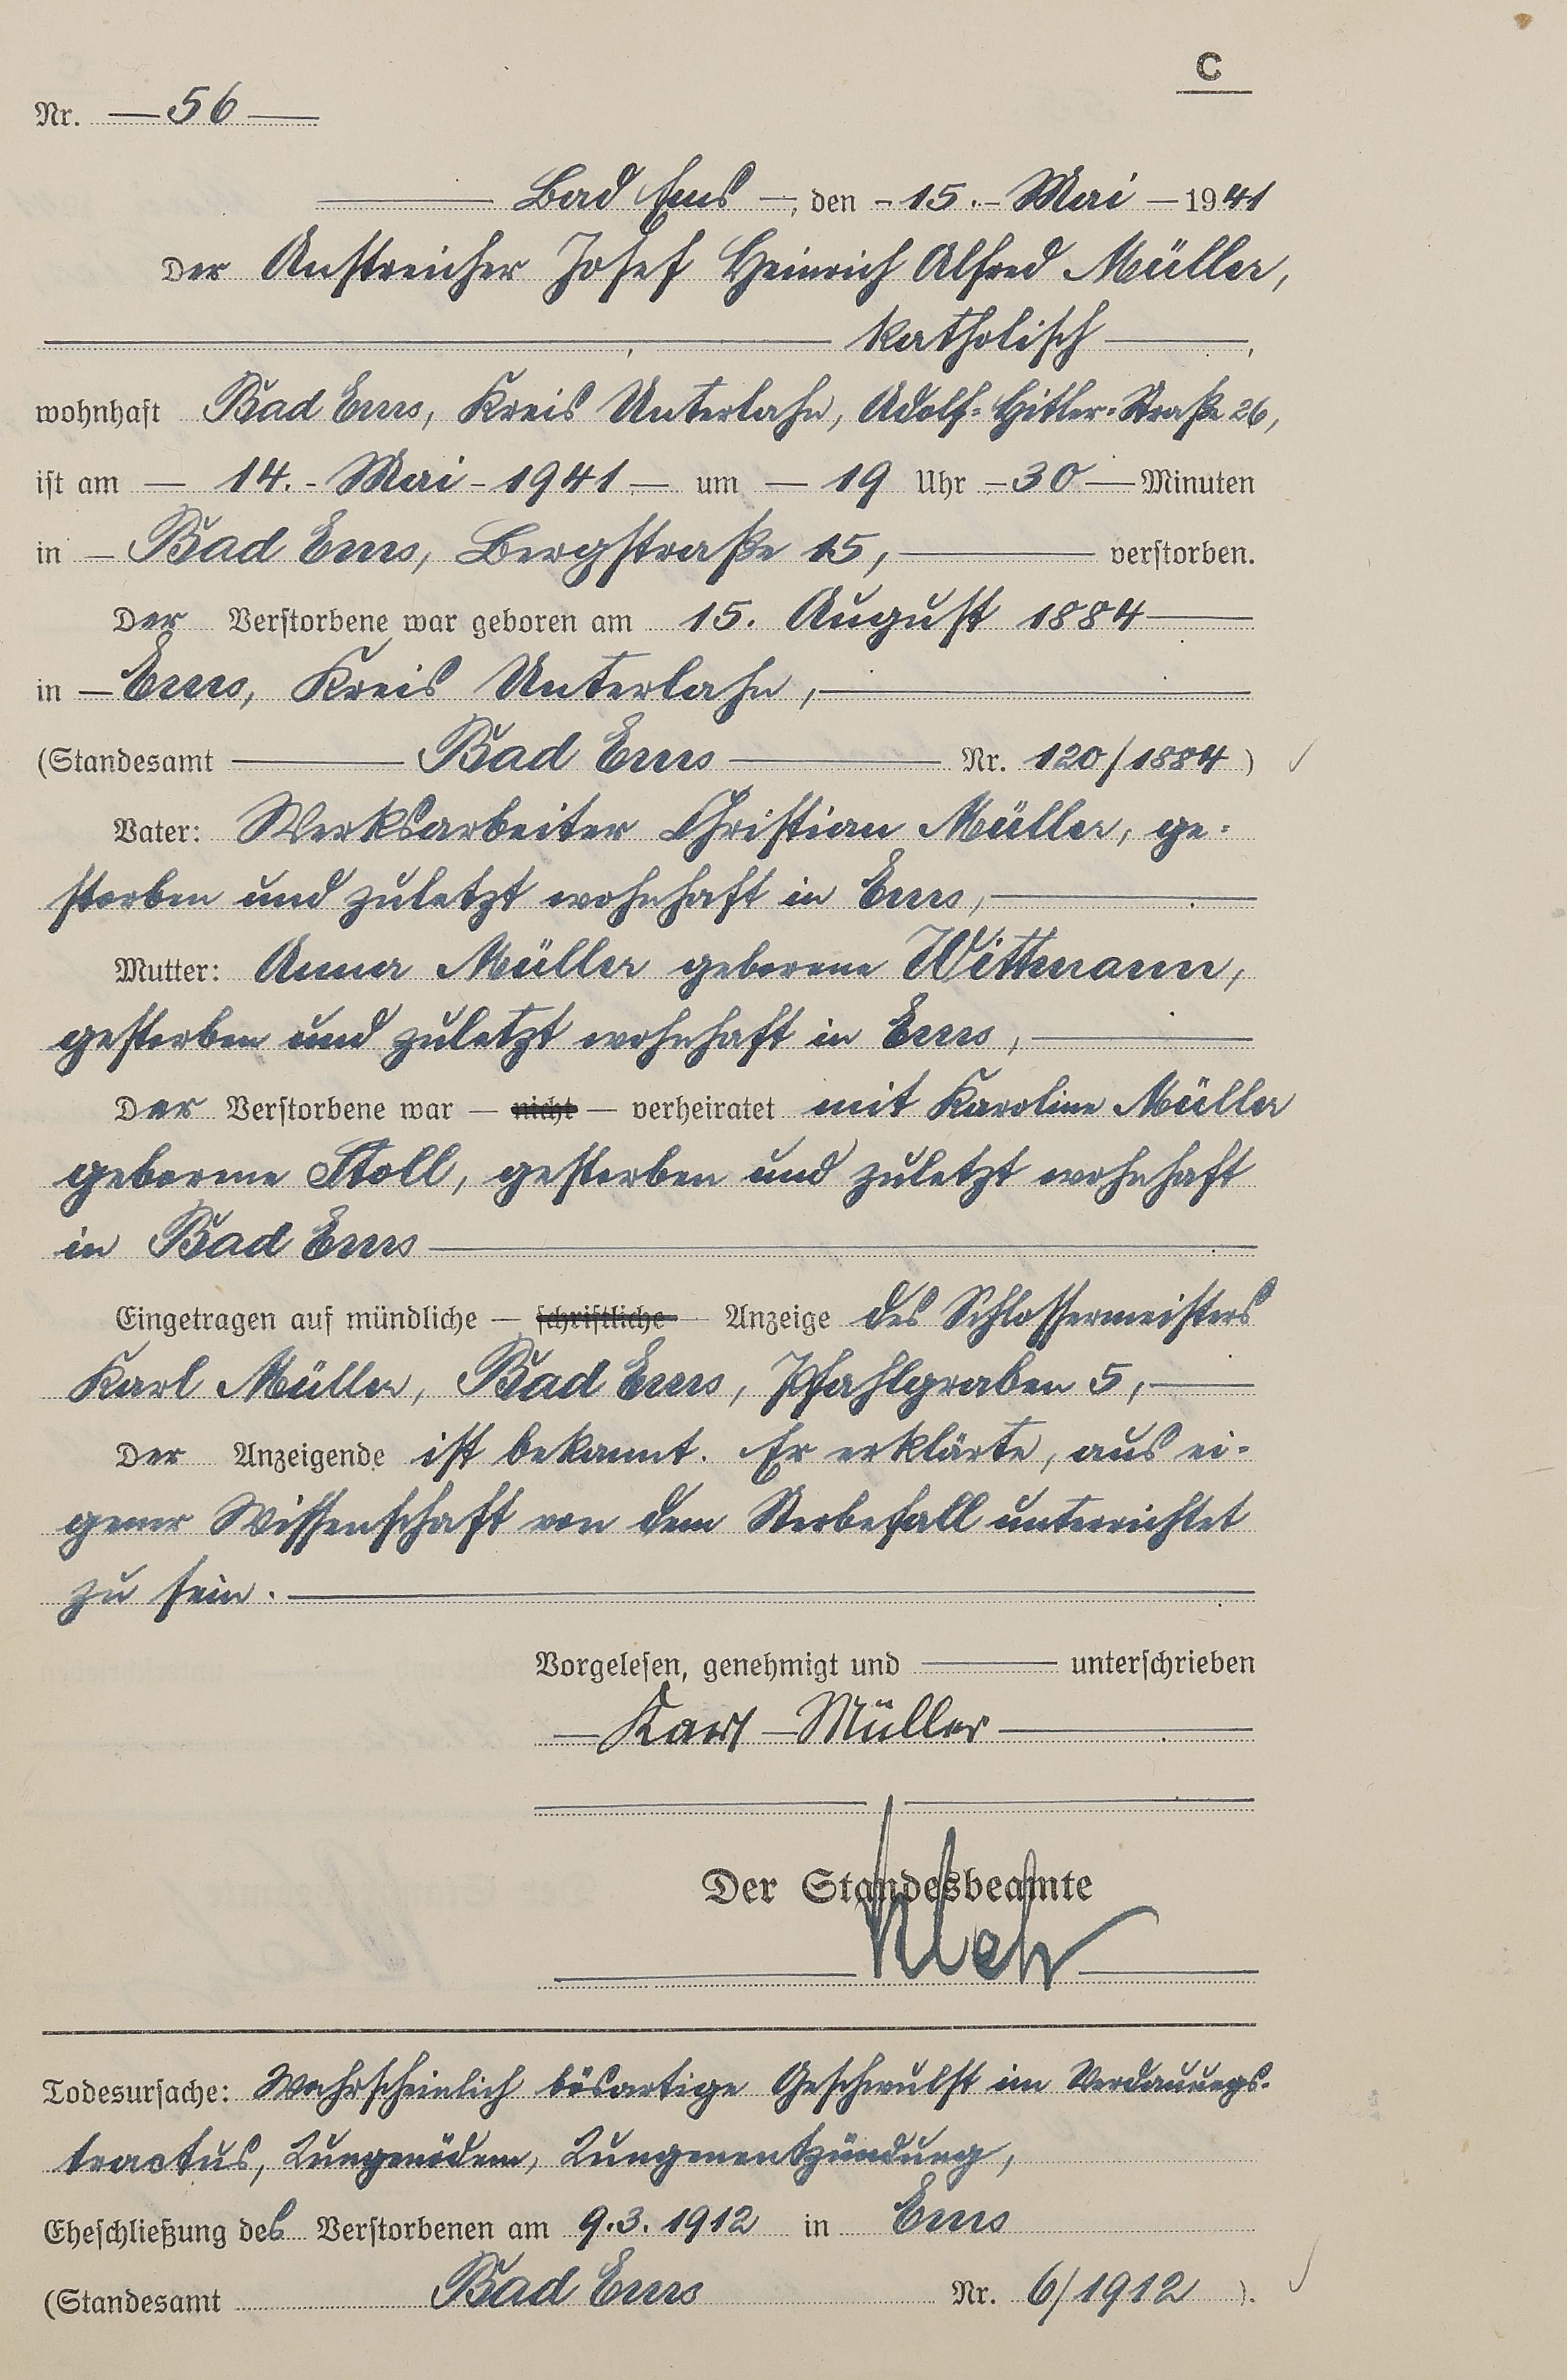 C
Nr. — 56 —
Bad Ems —, den - 15. - Mai — 1941
Der Anstreicher Josef Heinrich Alfred Müller,
, katholisch ,
wohnhaft Bad Ems, Kreis Unterlahn, Adolf-Hitler-Straße 26,
ist am — 14. - Mai - 1941 — um — 19 Uhr - 30 — Minuten
in — Bad Ems, Bergstraße 15, — verstorben.
Der Verstorbene war geboren am 15. August 1884 —
in — Ems, Kreis Unterlahn, —
(Standesamt — Bad Ems — Nr. 120/1884 )
Vater: Werksarbeiter Christian Müller, ge-
storben und zuletzt wohnhaft in Ems, —
Mutter: Anna Müller geborene Wittmann,
gestorben und zuletzt wohnhaft in Ems, —
Der Verstorbene war — nicht — verheiratet mit Karoline Müller
geborene Stoll, gestorben und zuletzt wohnhaft
in Bad Ems —
Eingetragen auf mündliche — schriftliche — Anzeige des Schlossermeisters
Karl Müller, Bad Ems, Pfahlgraben 5, —
Der Anzeigende ist bekannt. Er erklärte, aus ei-
gener Wissenschaft von dem Sterbefall unterrichtet
zu sein. —
Vorgelesen, genehmigt und — unterschrieben
— Karl — Müller —
Der Standesbeamte
Todesursache: Wahrscheinlich bösartige Geschwulst im Verdauungs-
tractus, Lungenödem, Lungenentzündung,
Eheschließung des Verstorbenen am 9.3.1912 in Ems
(Standesamt Bad Ems Nr. 6/1912 ).